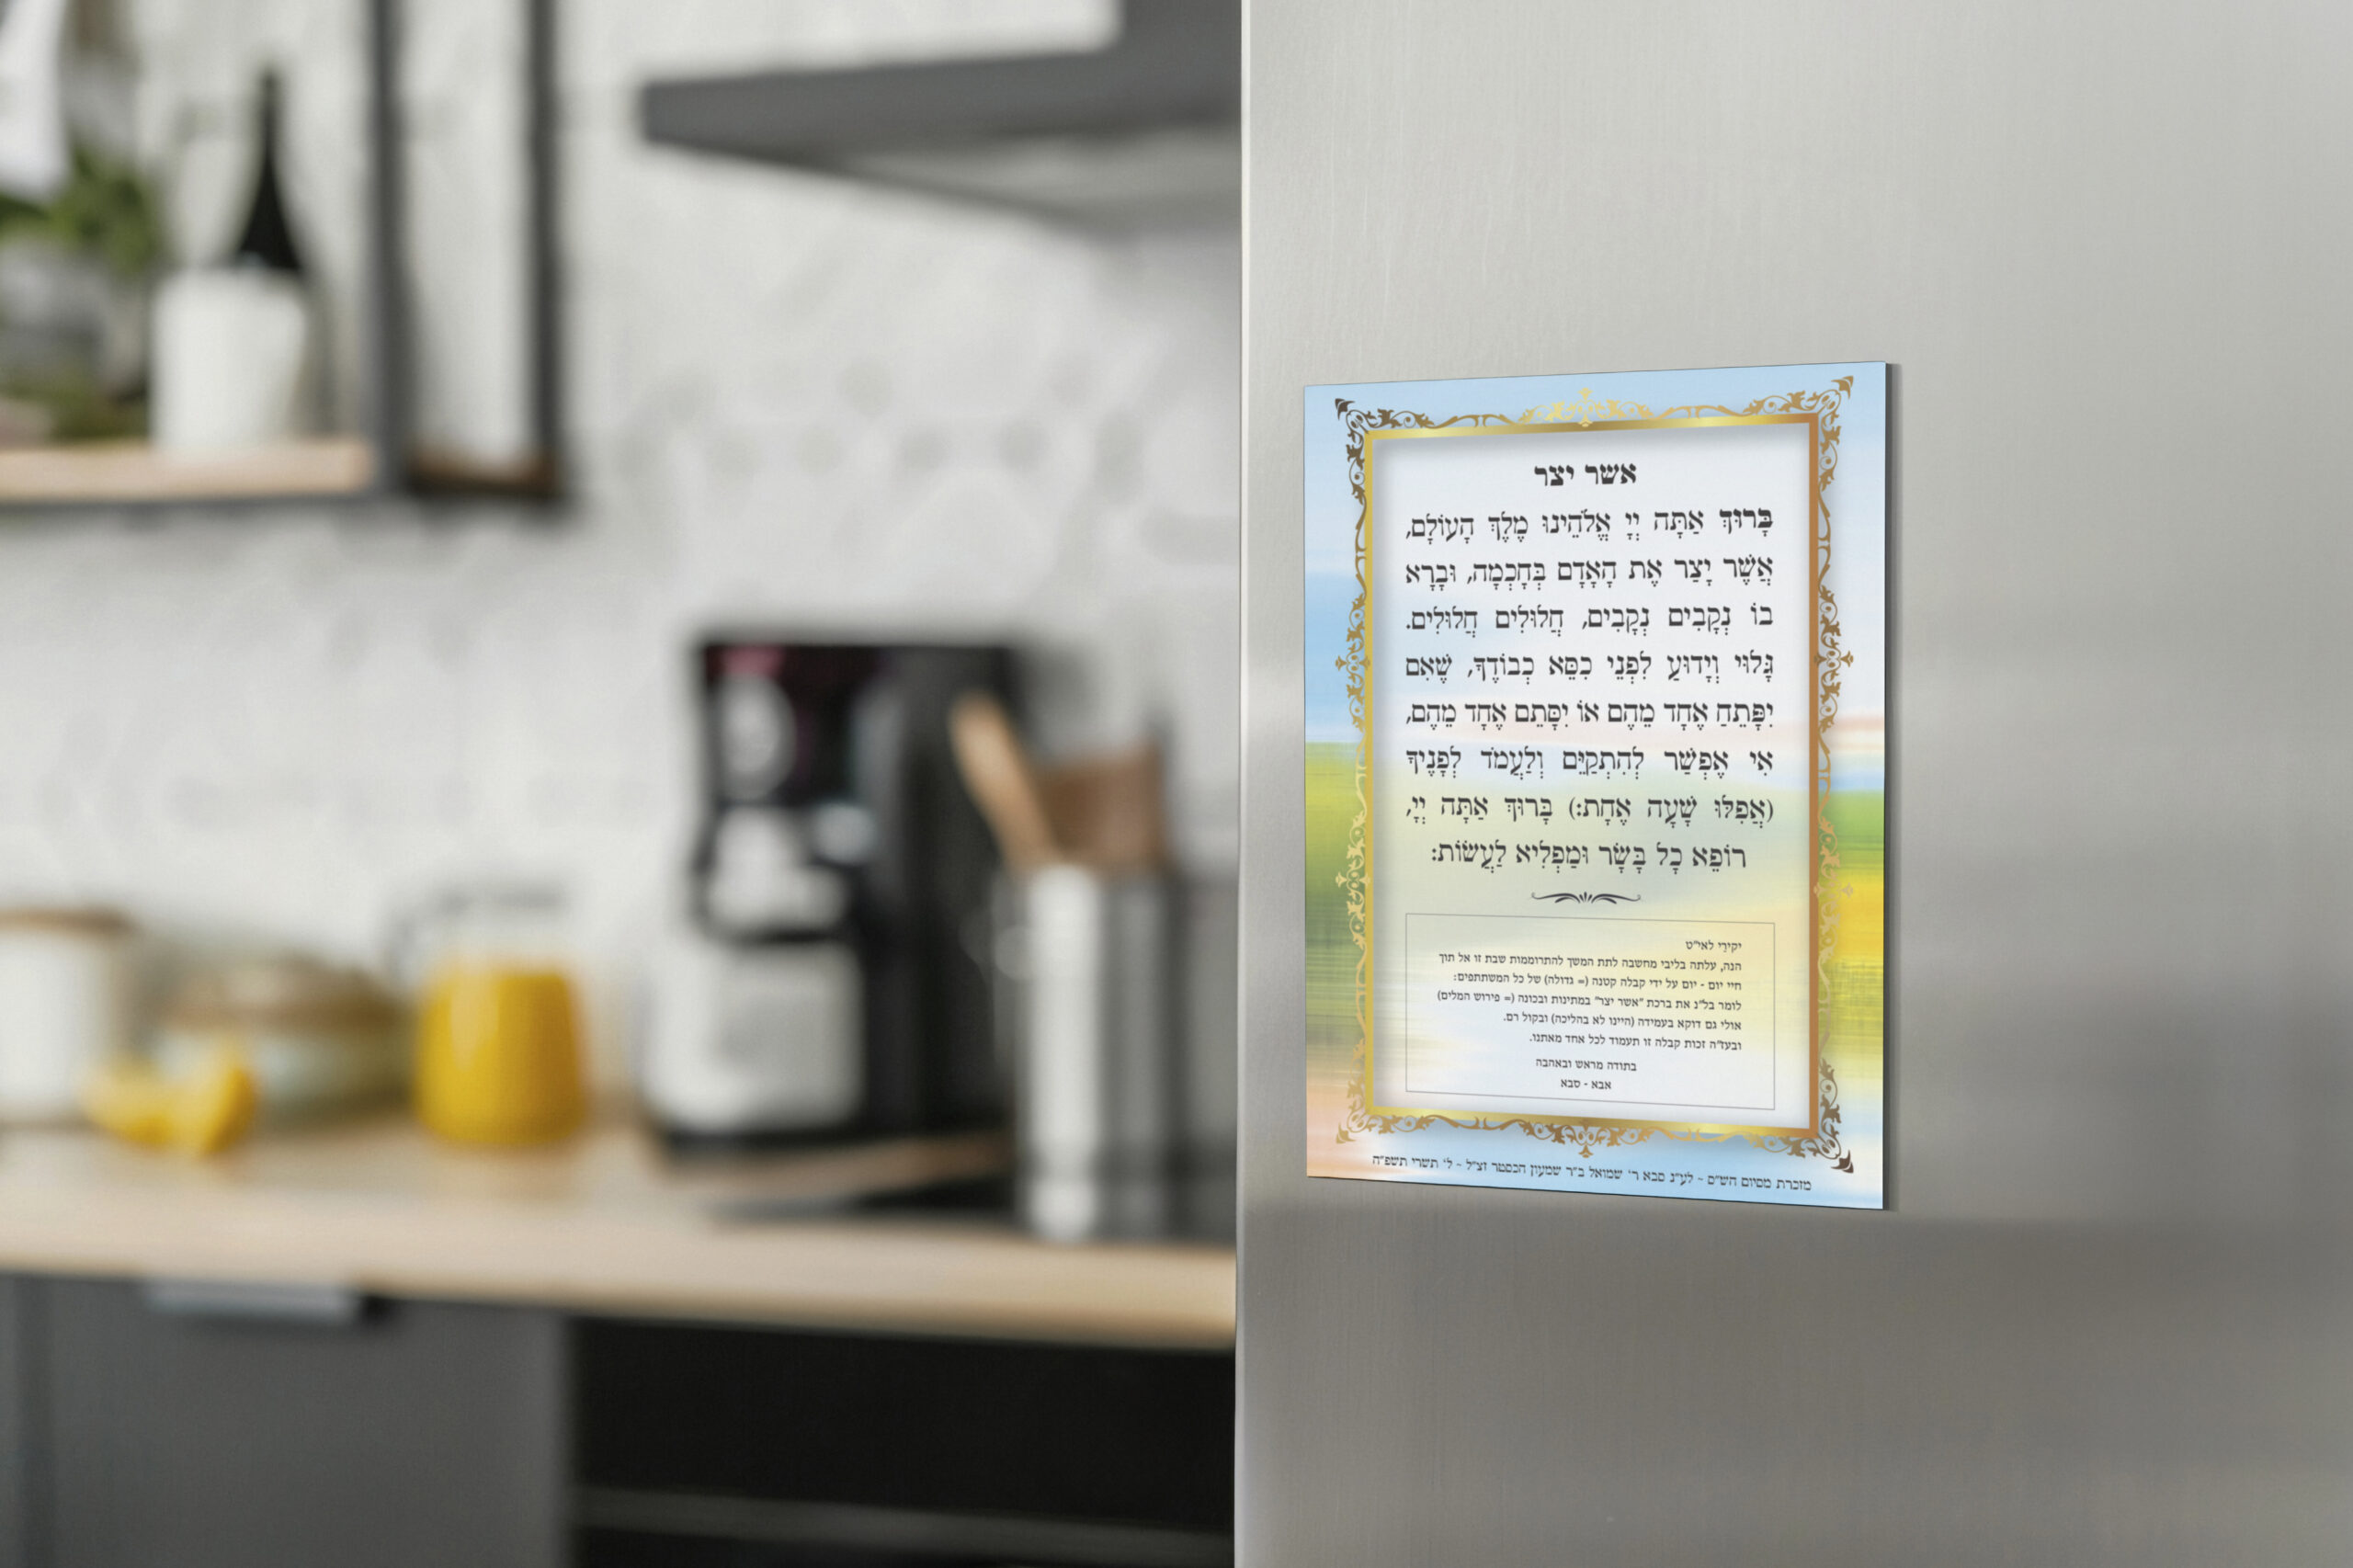 אשר יצר
בָּרוּךְ אַתָּה יְיָ אֱלֹהֵינוּ מֶלֶךְ הָעוֹלָם,
אֲשֶׁר יָצַר אֶת הָאָדָם בְּחָכְמָה, וּבָרָא
בוֹ נְקָבִים נְקָבִים, חֲלוּלִים חֲלוּלִים.
גָּלוּי וְיָדוּעַ לִפְנֵי כִסֵּא כְבוֹדֶךָ, שֶׁאִם
יִפָּתֵחַ אֶחָד מֵהֶם אוֹ יִסָּתֵם אֶחָד מֵהֶם,
אִי אֶפְשַׁר לְהִתְקַיֵּם וְלַעֲמֹד לְפָנֶיךָ
(אֲפִלּוּ שָׁעָה אֶחָת:) בָּרוּךְ אַתָּה יְיָ,
רוֹפֵא כָל בָּשָׂר וּמַפְלִיא לַעֲשׂוֹת:
יקירי לאי"ט
הנה, עלתה בליבי מחשבה לתת המשך להתרוממות שבת זו אל תוך
חיי יום - יום על ידי קבלה קטנה (= גדולה) של כל המשתתפים:
לומר בל"נ את ברכת "אשר יצר" במתינות ובכונה (= פירוש המלים)
אולי גם דוקא בעמידה (היינו לא בהליכה) ובקול רם.
ובעז"ה זכות קבלה זו תעמוד לכל אחד מאתנו.
בתודה מראש ובאהבה
אבא - סבא
מזכרת מסיום הש"ס ~ לע"נ סבא ר' שמואל ב"ר שמעון הכסטר זצ"ל ~ ל' תשרי תשפ"ה